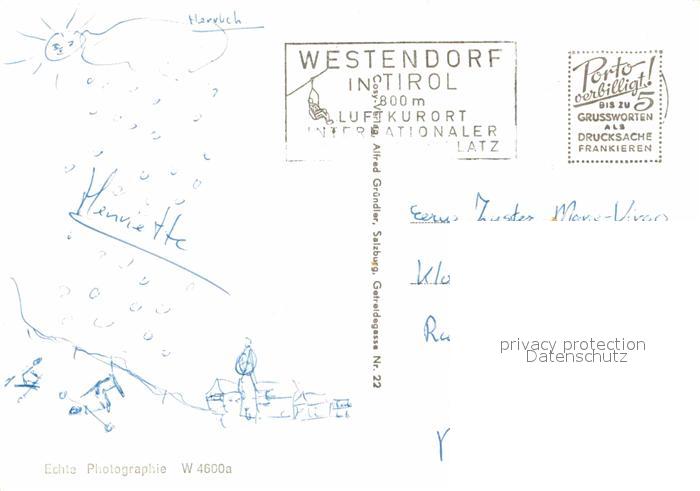 WESTENDORF
IN TIROL
800 m
LUFTKURORT
INTERNATIONALER
LATZ
Porto
verbilligt!
BIS ZU 5
GRUSSWORTEN
ALS
DRUCKSACHE
FRANKIEREN
Henriette
Cosy-Verlag Alfred Gründler, Salzburg, Getreidegasse Nr. 22
Zuster Marie-Vivian
Klo
Ru
privacy protection
Datenschutz
Echte Photographie W 4600a